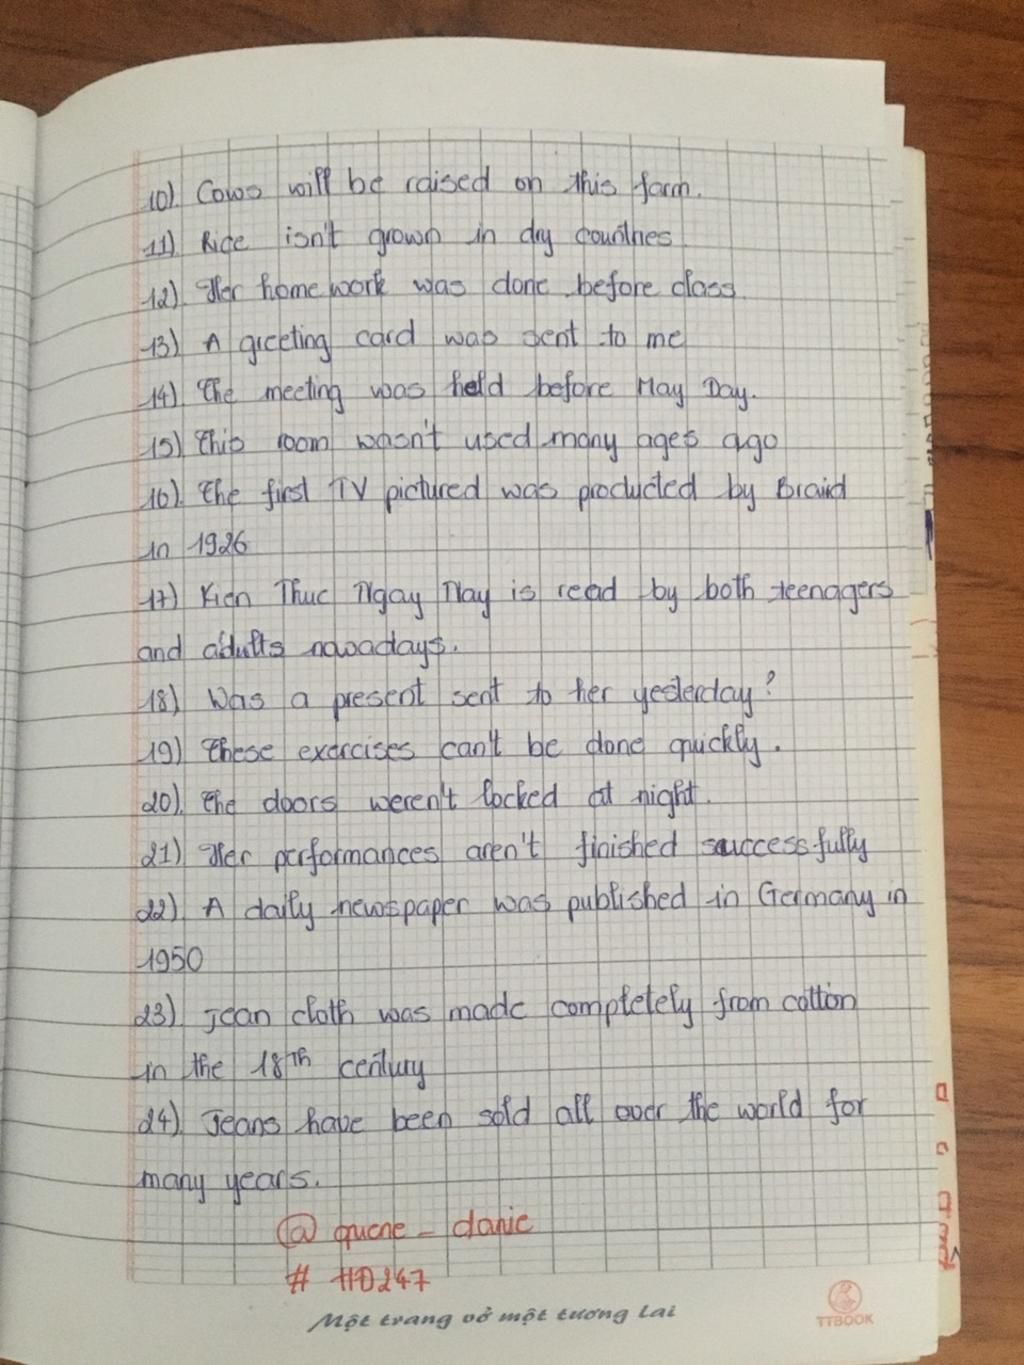 10) Cows will be raised on this farm.
11) Rice isn't grown in dry countries
12) Her homework was done before class.
13) A greeting card was sent to me
14) The meeting was held before May Day.
15) This room wasn't used many ages ago
16) The first TV pictured was producted by Braid
in 1926
17) Kien Thuc Ngay Nay is read by both teenagers
and adults nowadays.
18) Was a present sent to her yesterday?
19) These exercises can't be done quickly.
20) The doors weren't locked at night.
21) Her performances aren't finished successfully
22) A daily newspaper was published in Germany in
1950
23) Jean cloth was made completely from cotton
in the 18th century
24) Jeans have been sold all over the world for
many years.
@ quene_danie
# HĐ247
Một trang vở một tương lai
TTBOOK